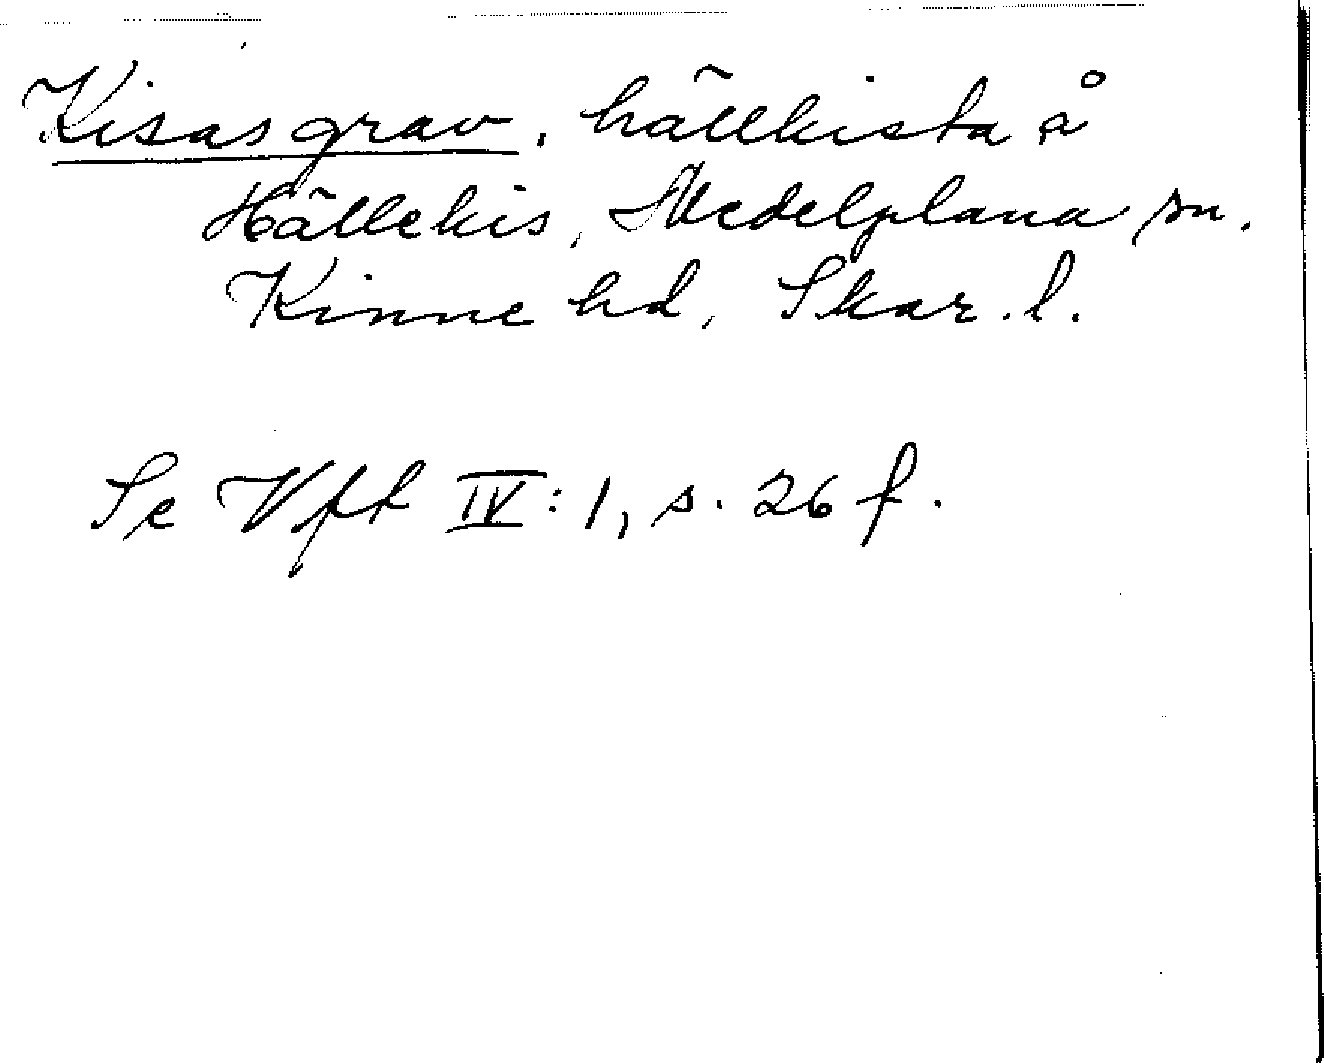 Kisas grav, hällkista å
Hällekis, Medelplana sn.
Kinne hd, Skar. l.
Se Vft IV: 1, s. 26 f.